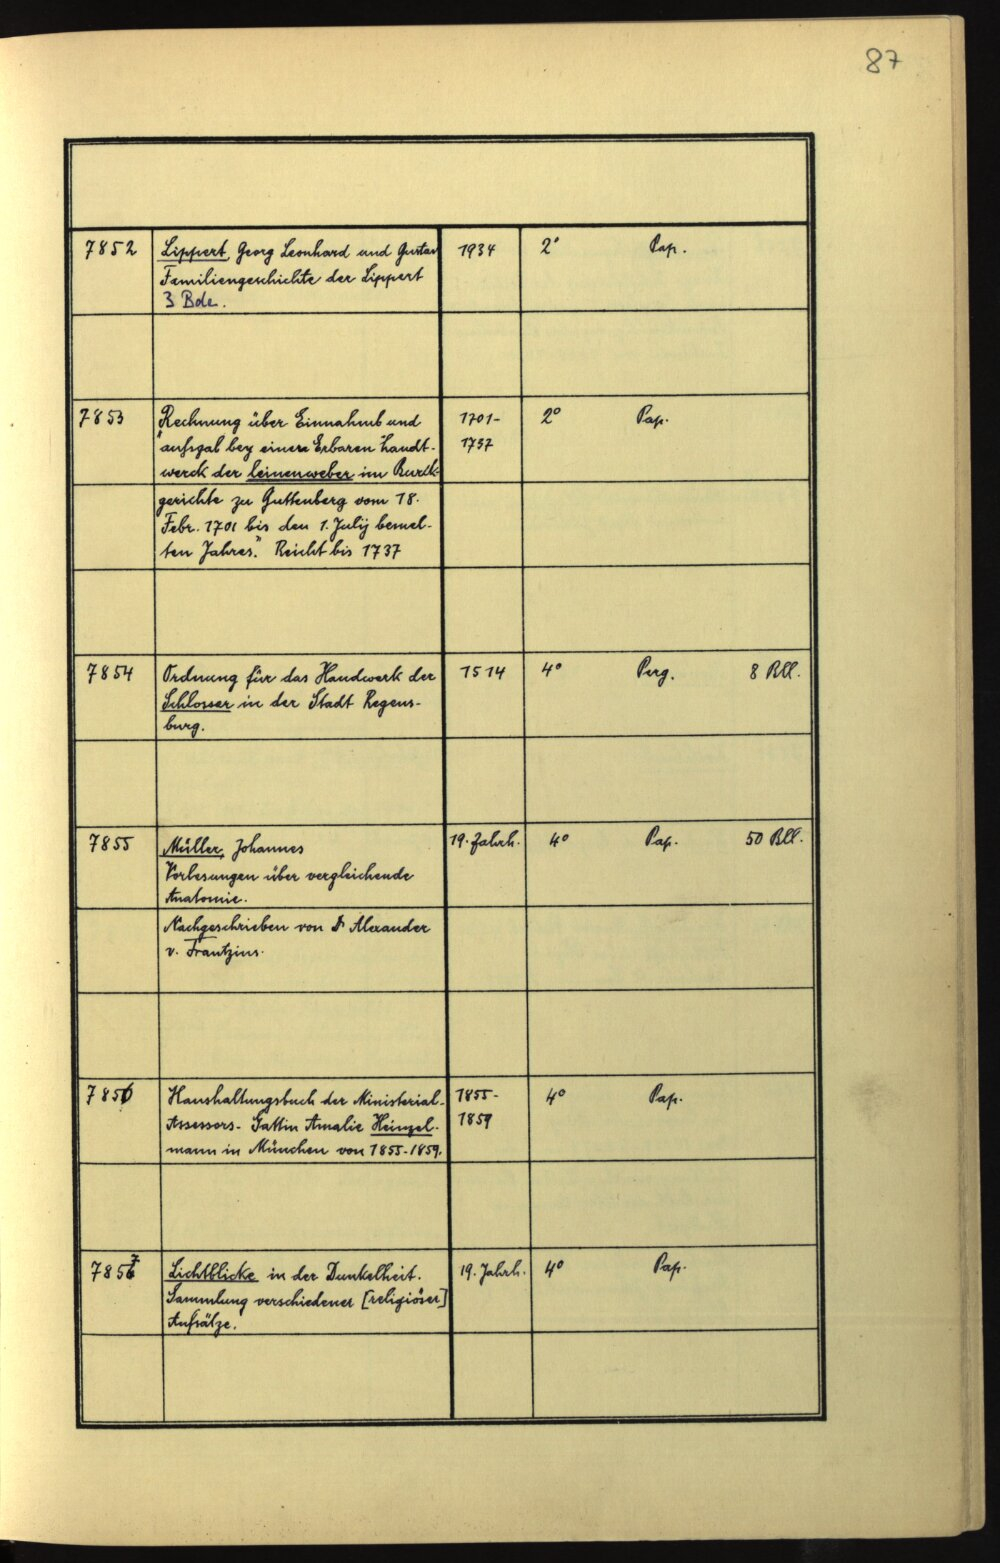 87
7852 Lippert, Georg Leonhard und Gustav 1934 2° Pap.
Familiengeschichte der Lippert
3 Bde.
7853 Rechnung über Einnahmb und 1701- 2° Pap.
"aufsgal bey einere Erbaren handt- 1737
werck der leinenweber im Burck-
gerichte zu Guttenberg vom 18.
Febr. 1701 bis den 1. Julij bemel-
ten Jahres." Reicht bis 1737
7854 Ordnung für das Handwerk der 1514 4° Perg. 8 Bll.
Schlosser in der Stadt Regens-
burg.
7855 Müller, Johannes 19. Jahrh. 4° Pap. 50 Bll.
Vorlesungen über vergleichende
Anatomie.
Nachgeschrieben von Dr Alexander
v. Frantzius.
7856 Haushaltungsbuch der Ministerial- 1855- 4° Pap.
Assessors-Gattin Amalie Heinzel- 1859
mann in München von 1855-1859.
7857 Lichtblicke in der Dunkelheit. 19. Jahrh. 4° Pap.
Sammlung verschiedener [religiöser]
Aufsätze.